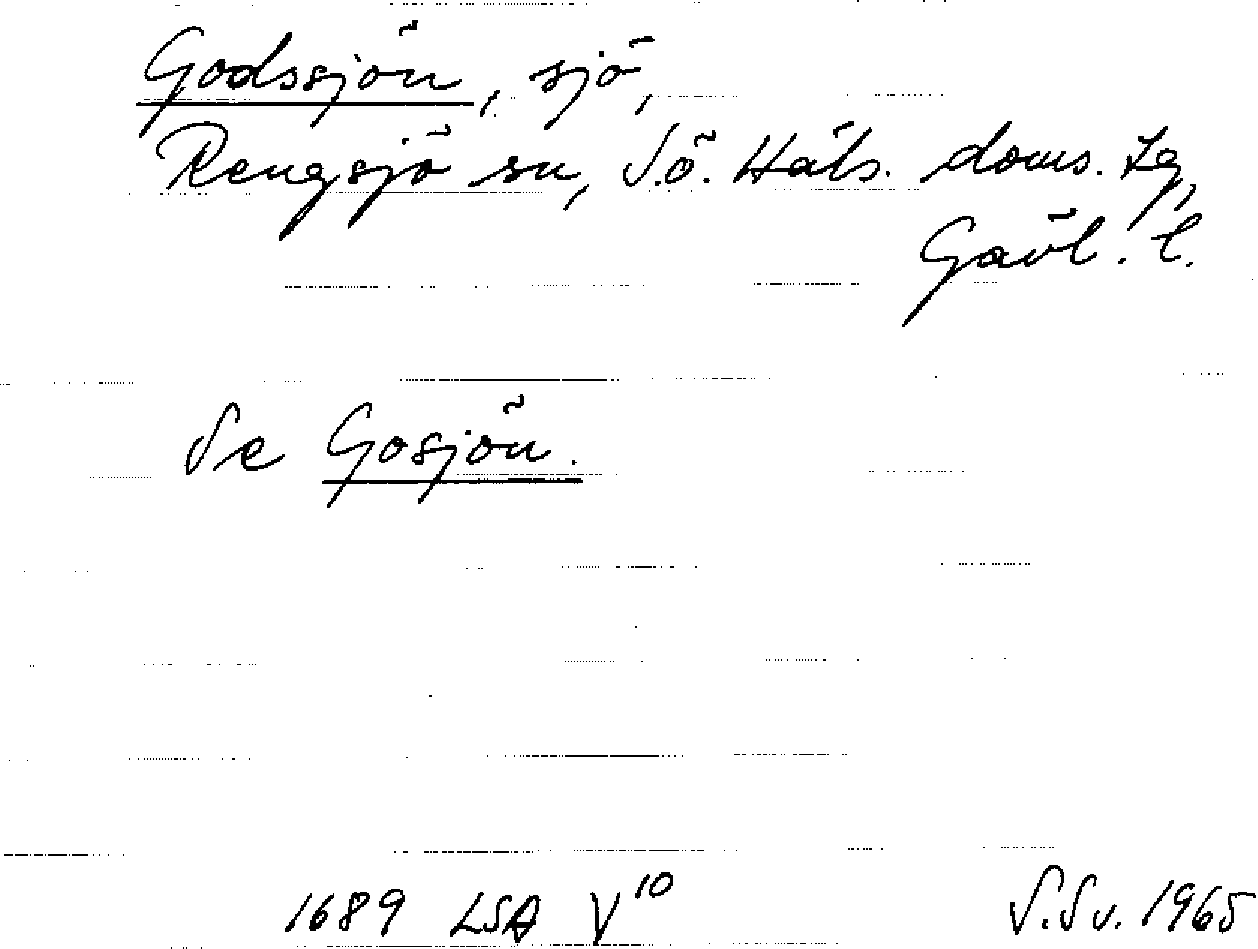 Godssjön, sjö,
Rengsjö sn, S.ö. Häls. doms. tg,
Gävl. l.
Se Gosjön.
1689 LSA V¹⁰ S.Sv. 1965